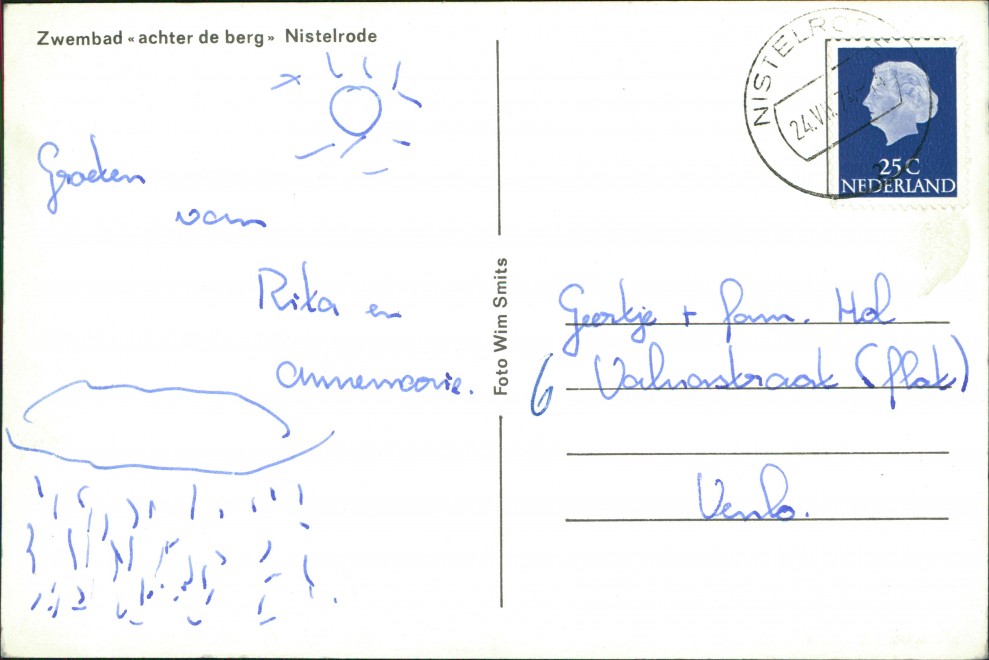 Zwembad «achter de berg» Nistelrode
Groeten
van
Rika en
Annemarie.
Foto Wim Smits
NISTELRO
25C
NEDERLAND
Geertje + fam. Hol
6 (flat)
Venlo.